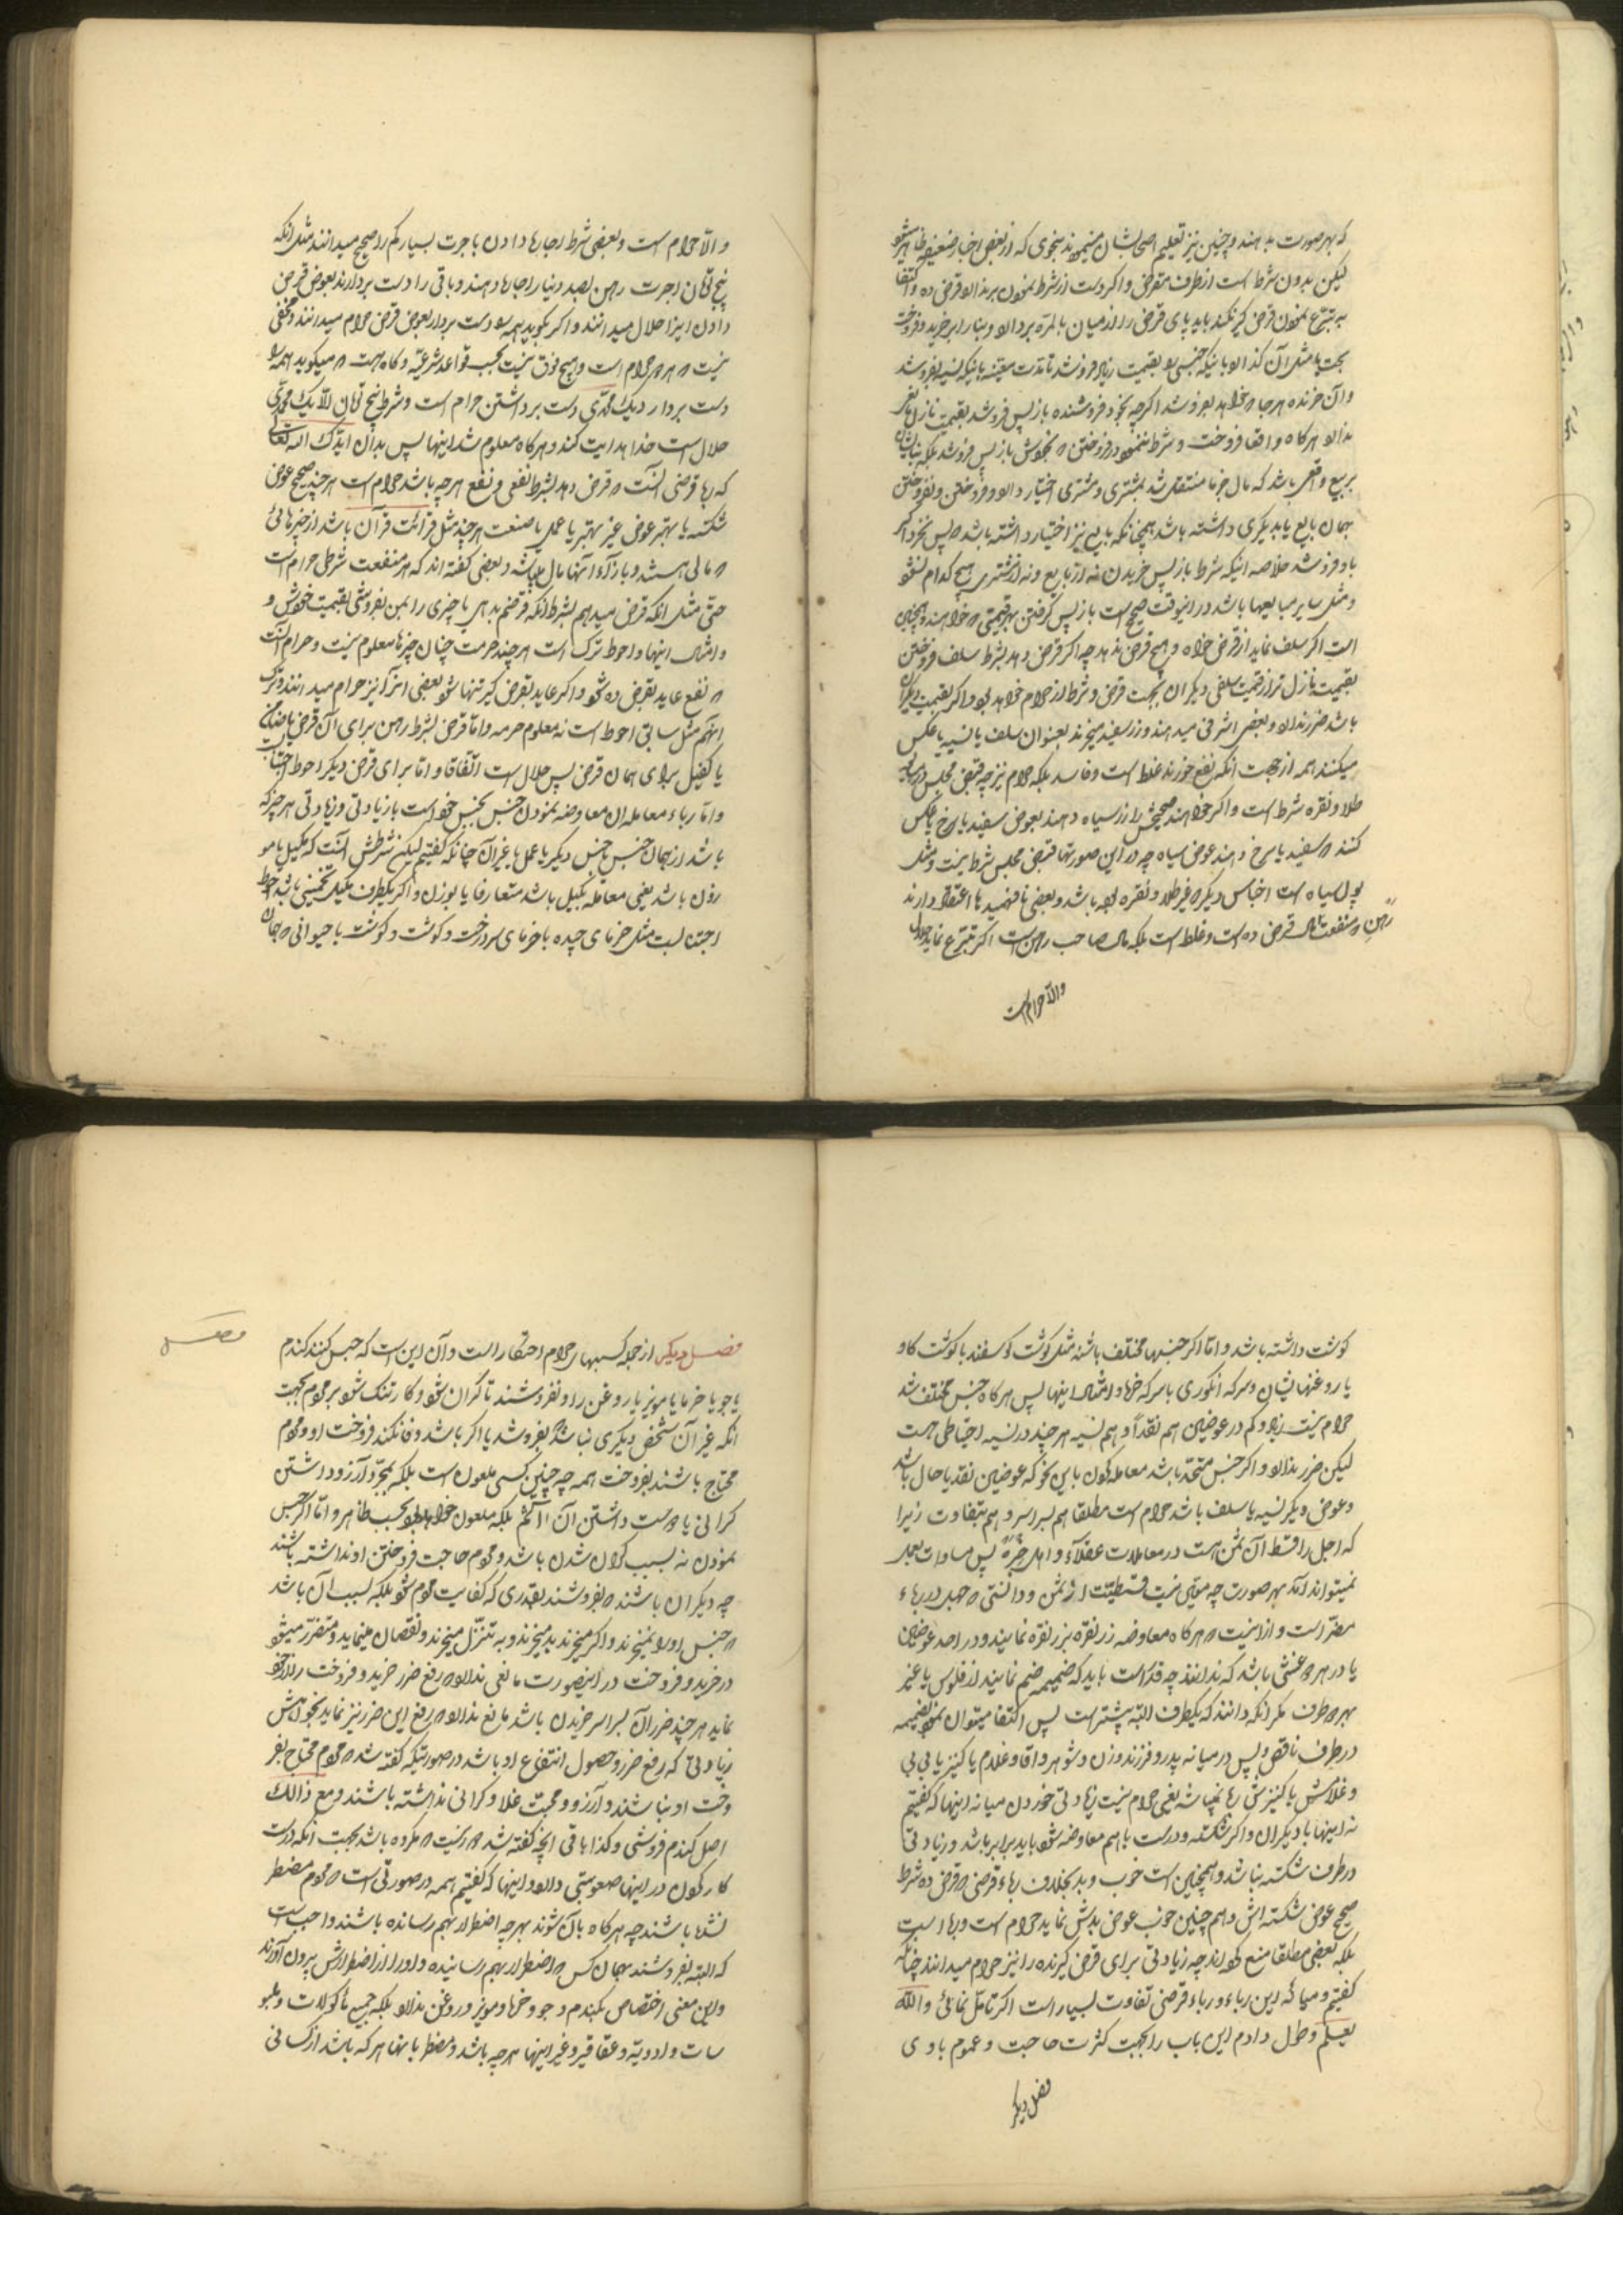 که بهر صورت بدهند و چنین نیز تعلیم اصحابشان مینمودند بنحوی که از بعض اخبار ضعیفه ظاهر میشود
لیکن بدون شرط است از طرف مقرض و اکر دست از شرط نمودن برندارد قرض ده و اکتفا
به تبرّع نمودن قرض گیر نکند باید پای قرض را از میان بالمرّه بردارد و بنا را بر خرید و فروخت
مثل آن گذارد باینکه جنسی را بقیمت زیاد فروشد تا مدت معیّنه یا نیکه نسیه بفروشد
و آن خرنده هرجا که خواهد بفروشد اکرچه بخود فروشنده باز پس فروشد بقیمت نازل ضرر
ندارد هرگاه واقعا فروخت و شرط ننمود در فروختن که بخودش باز پس فروشد بلکه بنایشان
بر بیع واقعی باشد که مال خرما منتقل شد بمشتری و مشتری اختیار دارد و فروختن و نفروختن
بهمان بایع یا بدیگری داشته باشد همچنانکه بایع نیز اختیار داشته باشد که پس نخرد اکر
باو فروشد خلاصه اینکه شرط باز پس خریدن نه از بایع و نه از مشتری هیچ کدام نشود
و مثل سایر مبایعها باشد در اینوقت صحیح است باز پس گرفتن بهر قیمتی که خواهند و همچنین
است اکر سلف نماید از قرض خواه و هیچ قرض ندهد چه اکر قرض دهد بشرط سلف فروختن
بقیمت نازل تر از قیمت سلفی دیگران بجهت قرض و شرط از حرام خواهد بود و اکر بقیمت دیگران
باشد ضرر ندارد و بعضی اشرفی میدهند و زر سفید میخرند بعنوان سلف یا نسیه یا عکس
میکنند همه از جهت آنکه نفع خورند غلط است و فاسد بلکه حرام نیز چه قبض مجلس در
طلا و نقره شرط است و اکر خواهند صحیحش را زر سیاه دهند بعوض سفید یا سرخ یا عکس
کنند که سفید یا سرخ دهند عوض سیاه چه در این صورتها قبض مجلس شرط نیست و مثل
پول سیاه است اجناس دیگر که غیر طلا و نقره بوده باشد و بعضی نافهمیدها اعتقاد دارند
رهن که منفعت مال قرض ده است و غلط است بلکه مال صاحب رهن است اکر تبرّع نماید حلال
والّا حرام است
والّا حرام است و بعضی شرط اجاره دادن باجرت بسیار کم را صحیح میدانند مثل آنکه
پنج تومان اجرت رهن بصد دینار را اجاره دهند و باقی را دست بردارند بعوض قرض
دادن این را حلال میدانند و اکر بگوید همه را دست بردار بعوض قرض حرام میدانند و مخفی
نیست که هر دو حرام است و هیچ فرق نیست بحسب قواعد شرعیّه و گاه هست که میگوید همه را
دست بردار دیک محمّدی دست برداشتن حرام است و شرط پنج تومان الّا یک محمّدی
حلال است خدا هدایت کند و هرگاه معلوم شد اینها پس بدان ایّدک الله تعالی
که رباء قرضی آنست که قرض دهد بشرط نفعی و نفع هرچه باشد حرام است هر چند صحیح عوض
شکسته یا بهتر عوض غیر بهتر یا عملی یا صنعت هر چند مثل قرائت قرآن باشد از چیزهائی
که مالی هستند و بازاء آنها مال میباشد و بعضی گفته اند که هر منفعت شرطی حرام است
حتی مثل آنکه قرض میدهم بشرط آنکه قرضم بدهی یا چیزی را بمن بفروشی بقیمت خودش و
و امثال اینها و احوط ترک است هر چند حرمت چنان چیزها معلوم نیست و حرام آنست
که نفع عاید بقرض ده شود و اکر عاید بقرض گیر تنها شود بعضی آنرا نیز حرام میدانند و ترک
آنهم مثل سابق احوط است نه معلوم حرمه و امّا قرض بشرط رهن برای آن قرض یا ضامن
یا کفیل برای همان قرض پس حلال است اتفاقا و امّا برای قرض دیگر احوط اجتنابست
و امّا رباء معامله ان معاوضه نمودن جنس بجنس خود است با زیادتی و زیادتی هر چیز که
باشد از همان جنس یا جنس دیگر یا عمل یا غیر آن چنانکه گفتیم لیکن شرطش آنست که مکیل یا مو
زون باشد یعنی معامله بکیل باشد متعارفا یا بوزن و اکر یکطرف مکیل تخمینی باشد احوط
اجتنابست مثل خرمای چیده با خرمای سر درخت و گوشت و گوشت با حیوانی که جان
گوشت داشته باشد و امّا اکر جنسها مختلف باشند مثل گوشت گوسفند با گوشت گاو
یا روغنهایشان و سرکه انگوری با سرکه خرما و امثال اینها پس هرگاه جنس مختلف شد
حرام نیست زیاد و کم در عوضین هم نقداً و هم نسیه هر چند در نسیه احتیاطی هست
لیکن ضرر ندارد و اکر جنس متّحد باشد معامله کردن باین نحو که عوضین نقد یا حال باشد
و عوض دیگر نسیه یا سلف باشد حرام است مطلقا هم سراسر و هم بتفاوت زیرا
که اجل را قسط آن ثمن هست در معاملات عقلاً و اهل خبره پس مساوات بعمل
نمیتواند آمد بهر صورت چه معیّن نیست قسطیّت از ثمن و دانستی که جهل در رباء
مضرّ است و از اینست که هرگاه معاوضه زر نقره بزر نقره نمایند و در احد عوضین
یا در هر دو غشی باشد که ندانند چه قدر است باید که ضمیمه ضم نمایند از فلوس یا غیر
بهر دو طرف مگر آنکه دانند که یکطرف البته بیشتر است پس اکتفا میتوان نمود بضمیمه
در طرف ناقص و پس در میانه پدر و فرزند و زن و شوهر و آقا و غلام یا کنیز یا بی بی
و غلامش یا کنیزش ربا نمیباشد یعنی حرام نیست زیادتی خوردن میانه اینها که گفتیم
نه اینها با دیگران و اکر شکسته و درست با هم معاوضه شود باید برابر باشد و زیادتی
در طرف شکسته نباشد و همچنین است خوب و بد بخلاف رباء قرضی که قرض ده شرط
صحیح عوض شکسته اش و هم چنین خوب عوض بدش نماید حرام است و ربا است
بلکه بعضی مطلقا منع کرده اند چه زیادتی برای قرض گیرنده را نیز حرام میدانند چنانکه
گفتیم و میانه این رباء و رباء قرضی تفاوت بسیار است اکر تامّل نمائی والله
یعلم و طول دادم این باب را بجهت کثرت حاجت و عموم بلوی
فصل دیگر
فصل
فصل دیگر از جمله کسبهای حرام احتکار است و آن این است که حبس کنند گندم
یا جو یا خرما یا مویز یا روغن را و نفروشند تا گران شود و کار تنگ شود بر مردم بجهت
آنکه غیر آن شخص دیگری نباشد که بفروشد یا اکر باشد وفا نکند فروخت او و مردم
محتاج باشند بفروخت همه چه چنین کسی ملعون است بلکه بمجرّد آرزو داشتن
گرانی یا دوست داشتن آن آثم بلکه ملعون خواهد بود بحسب ظاهر و امّا اکر حبس
نمودن نه بسبب گران شدن باشد و مردم حاجت فروختن او نداشته باشند
چه دیگران باشند که بفروشند بقدری که کفایت مردم شود بلکه بسبب آن باشد
که جنس او را نمیخرند و اکر میخرند بد میخرند و به تنزّل میخرند و نقصان مینماید و متضرّر میشود
در خرید و فروخت در اینصورت مانعی ندارد که رفع ضرر خرید و فروخت را از خود
نماید هر چند ضرر آن سراسر خریدن باشد مانع ندارد که رفع این ضرر نیز نماید بخواهش
زیادتی که رفع ضرر و حصول انتفاع او باشد در صورتیکه گفته شد که مردم محتاج بفر
وخت او نباشند و آرزو و محبت غلا و گرانی نداشته باشند و مع ذالک
اصل گندم فروشی و کذا باقی آنچه گفته شد دور نیست که مکروه باشد بجهت آنکه درست
کار کردن در اینها صعوبتی دارد و اینها که گفتیم همه در صورتی است که مردم مضطر
نشده باشند چه هرگاه بآن شوند بهر چه اضطرار بهم رسانده باشند واجب است
که البته بفروشند بهمان کس که اضطرار بهم رسانیده و او را از اضطرارش بیرون آورند
و این معنی اختصاص بگندم و جو و خرما و مویز و روغن ندارد بلکه جمیع مأکولات و ملبو
سات و ادویه و عقاقیر و غیر اینها هر چه باشد و مضطر بآنها هر که باشد از کسانی